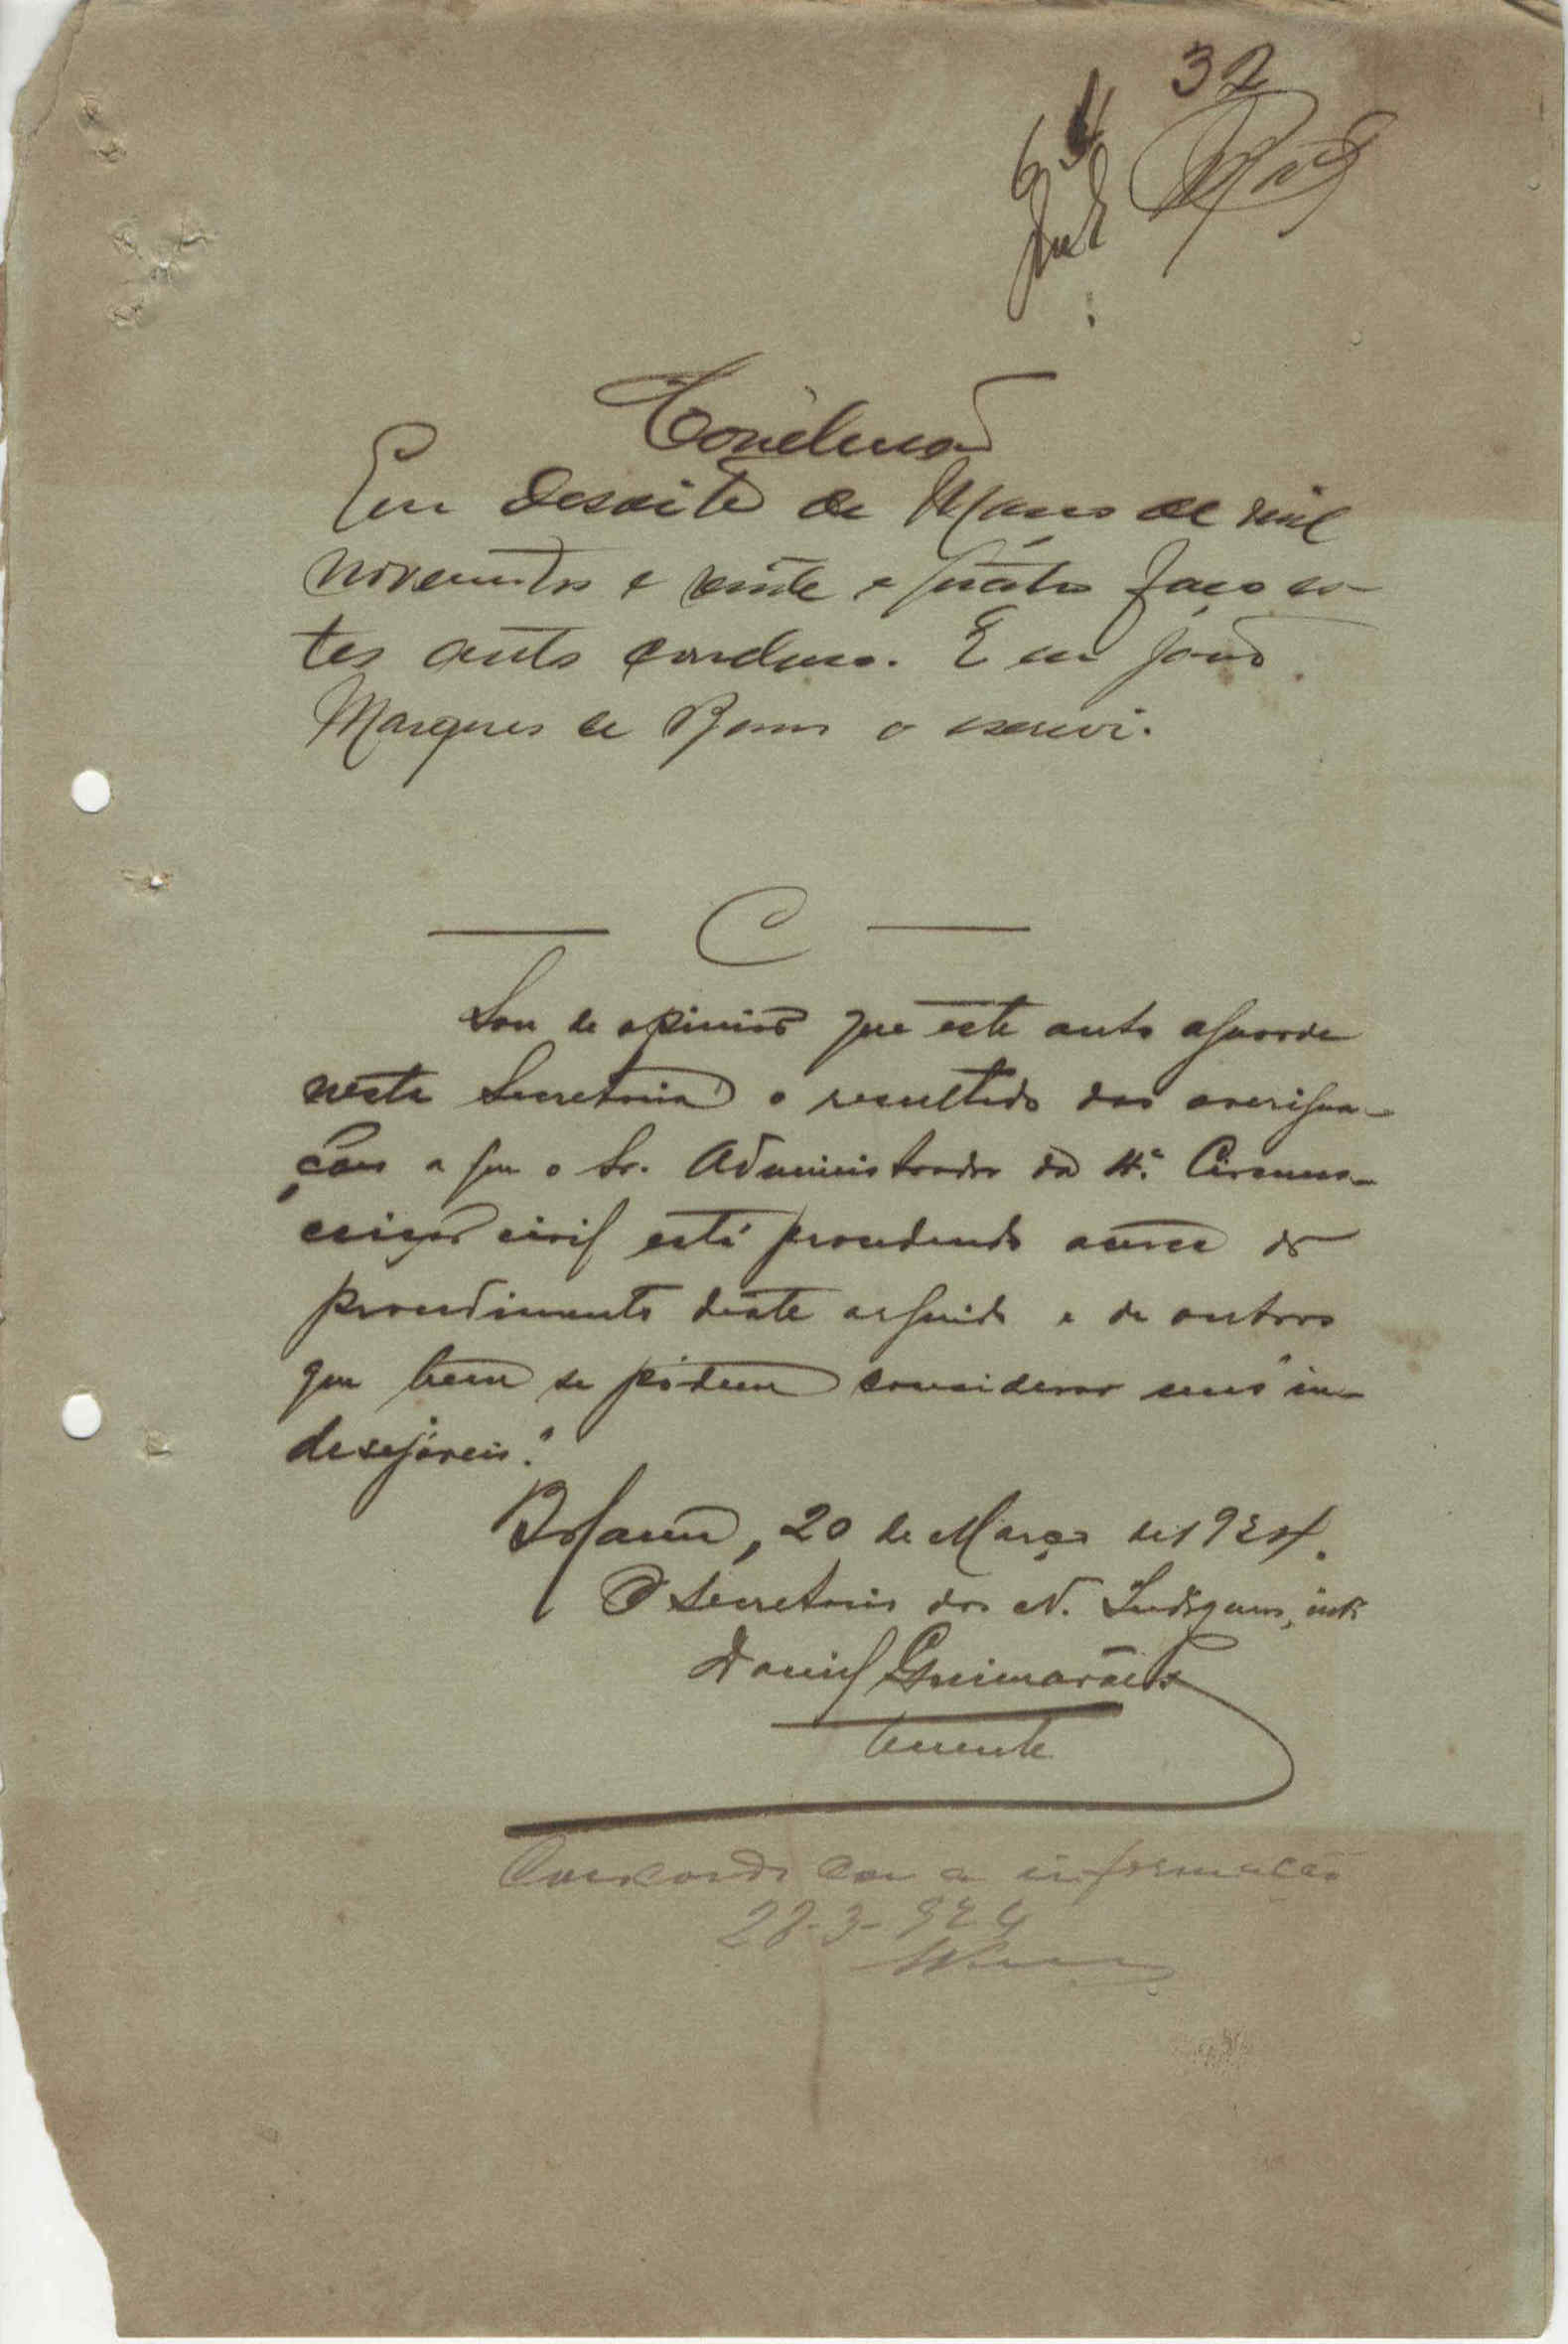 32
Conclusão
Em desoito de Março de mil
novecentos e vinte e quatro faço es-
tes auto concluso. E eu João
Marques de Barros o escrevi.
C
Sou de opinião que este auto aguarde
nesta Secretaria o resultado das averigua-
ções a que o Sr. Administrador da 4.ª Circuns-
crição civil está procedendo acerca do
procedimento deste arguido e de outros
que bem se pódem considerar uns "in-
desejáveis."
Bolama, 20 de Março de 1924.
O Secretario dos N. Indigenas, int.º
Daniel Guimarães
tenente
Concordo com a informação
28-3-924